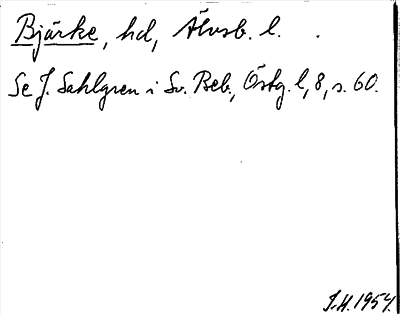 Bjärke, hd, Älvsb. l.
Se J. Sahlgren i Sv. Beb., Östg. l, 8, s. 60.
J.H. 1954.